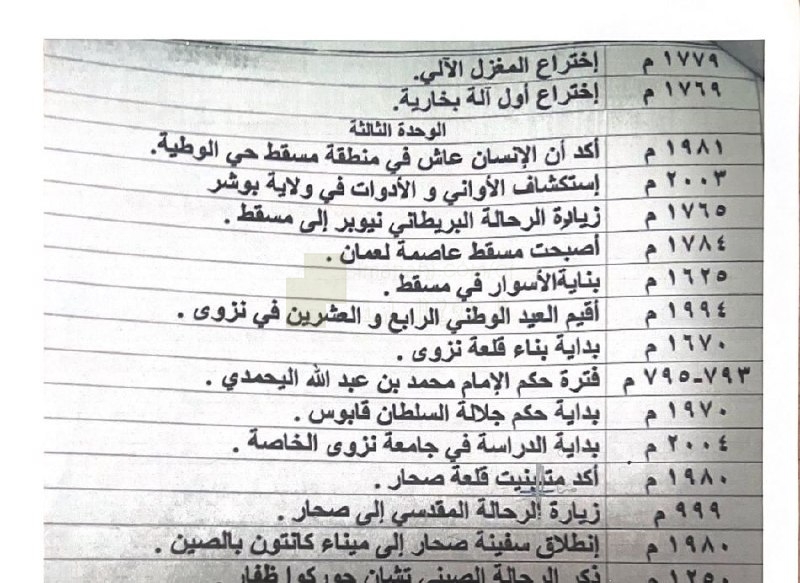 ١٧٧٩ م إختراع المغزل الآلي.
١٧٦٩ م إختراع أول آلة بخارية.
الوحدة الثالثة
١٩٨١ م أكد أن الإنسان عاش في منطقة مسقط حي الوطية.
٢٠٠٣ م إستكشاف الأواني و الأدوات في ولاية بوشر
١٧٦٥ م زيارة الرحالة البريطاني نيوبر إلى مسقط .
١٧٨٤ م أصبحت مسقط عاصمة لعمان .
١٦٢٥ م بنايةالأسوار في مسقط .
١٩٩٤ م أقيم العيد الوطني الرابع و العشرين في نزوى .
١٦٧٠ م بداية بناء قلعة نزوى .
٧٩٣-٧٩٥ م فترة حكم الإمام محمد بن عبد الله اليحمدي .
١٩٧٠ م بداية حكم جلالة السلطان قابوس .
٢٠٠٤ م بداية الدراسة في جامعة نزوى الخاصة .
١٩٨٠ م أكد متى بنيت قلعة صحار .
٩٩٩ م زيارة الرحالة المقدسي إلى صحار .
١٩٨٠ م إنطلاق سفينة صحار إلى ميناء كانتون بالصين .
١٢٥٠ م ذكر الرحالة الصيني تشان جوركوا ظفار